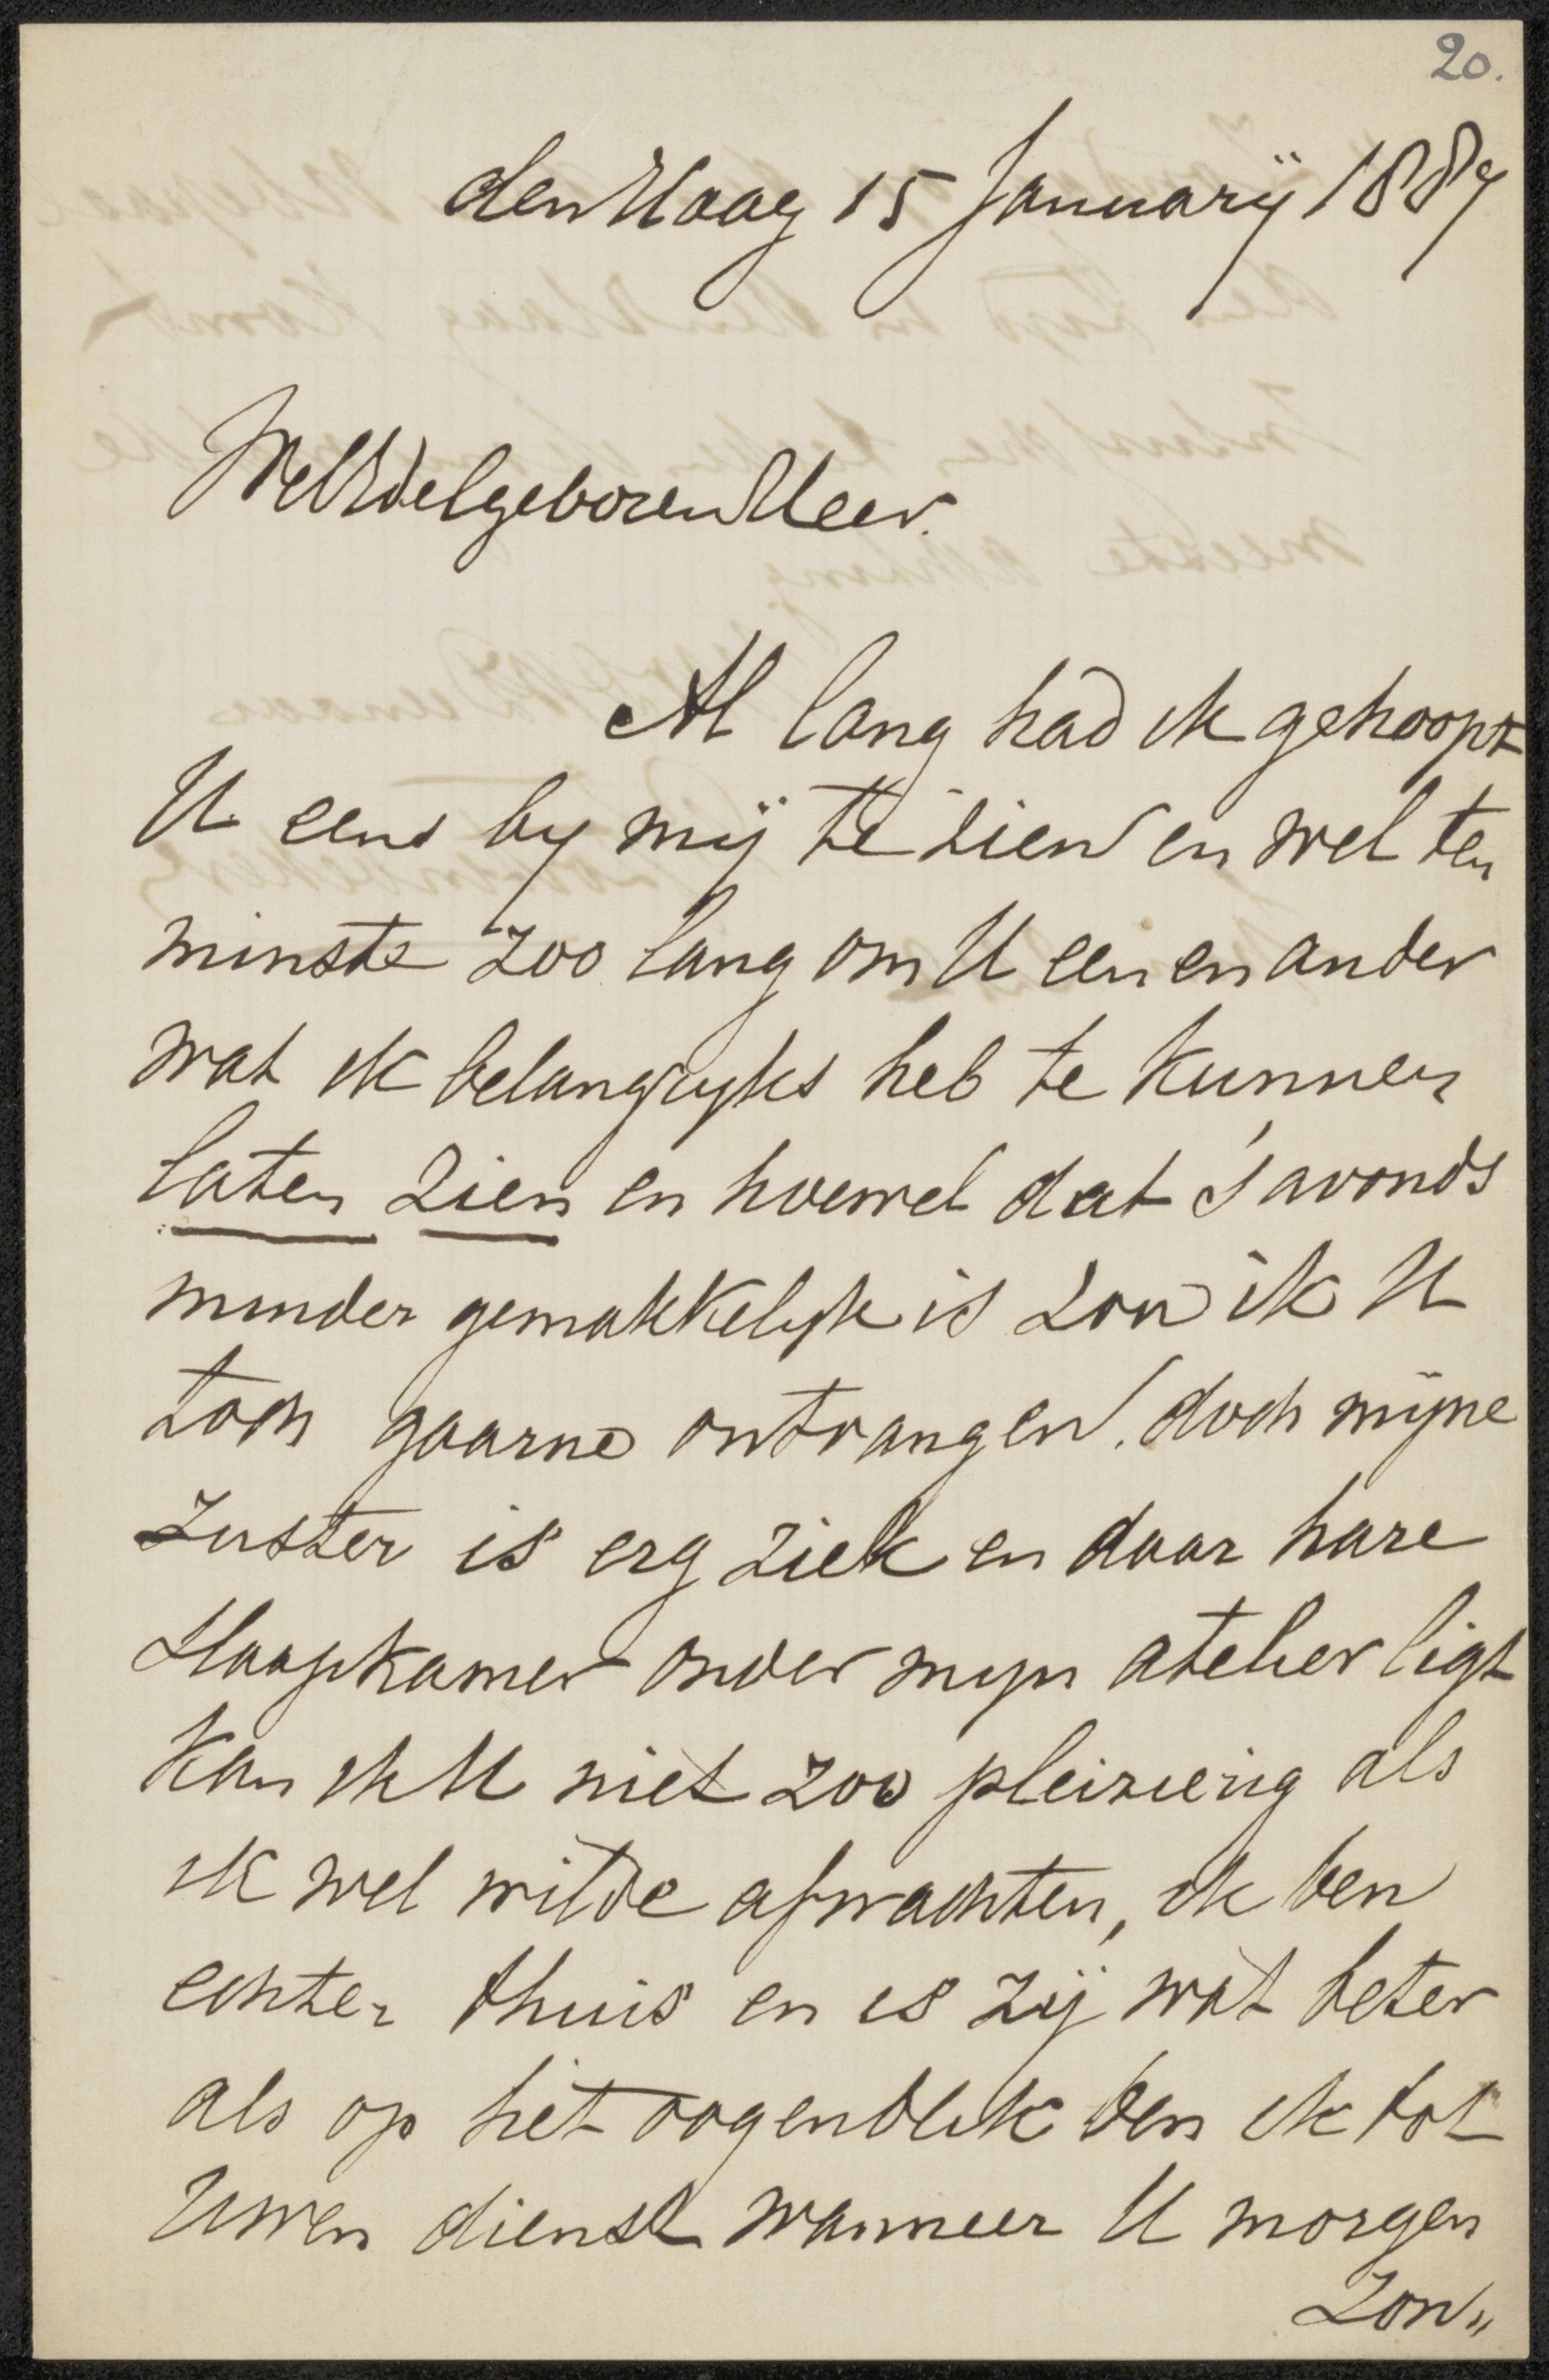 20.
den Haag 15 Januarij 1887
WelEdelgeboren Heer.
Al lang had ik gehoopt
U eens by mij te zien en wel ten
minste zoo lang om U een en ander
wat ik belangryks heb te kunnen
laten zien en hoewel dat 's avonds
minder gemakkelyk is zou ik U
toch gaarne ontvangen. doch mijne
zuster is erg ziek en daar hare
slaapkamer onder myn atelier ligt
kan ik U niet zoo pleizierig als
ik wel wilde afwachten, ik ben
echter thuis en is zij wat beter
als op het oogenblik ben ik tot
Uwen dienst wanneer U morgen
Zon„